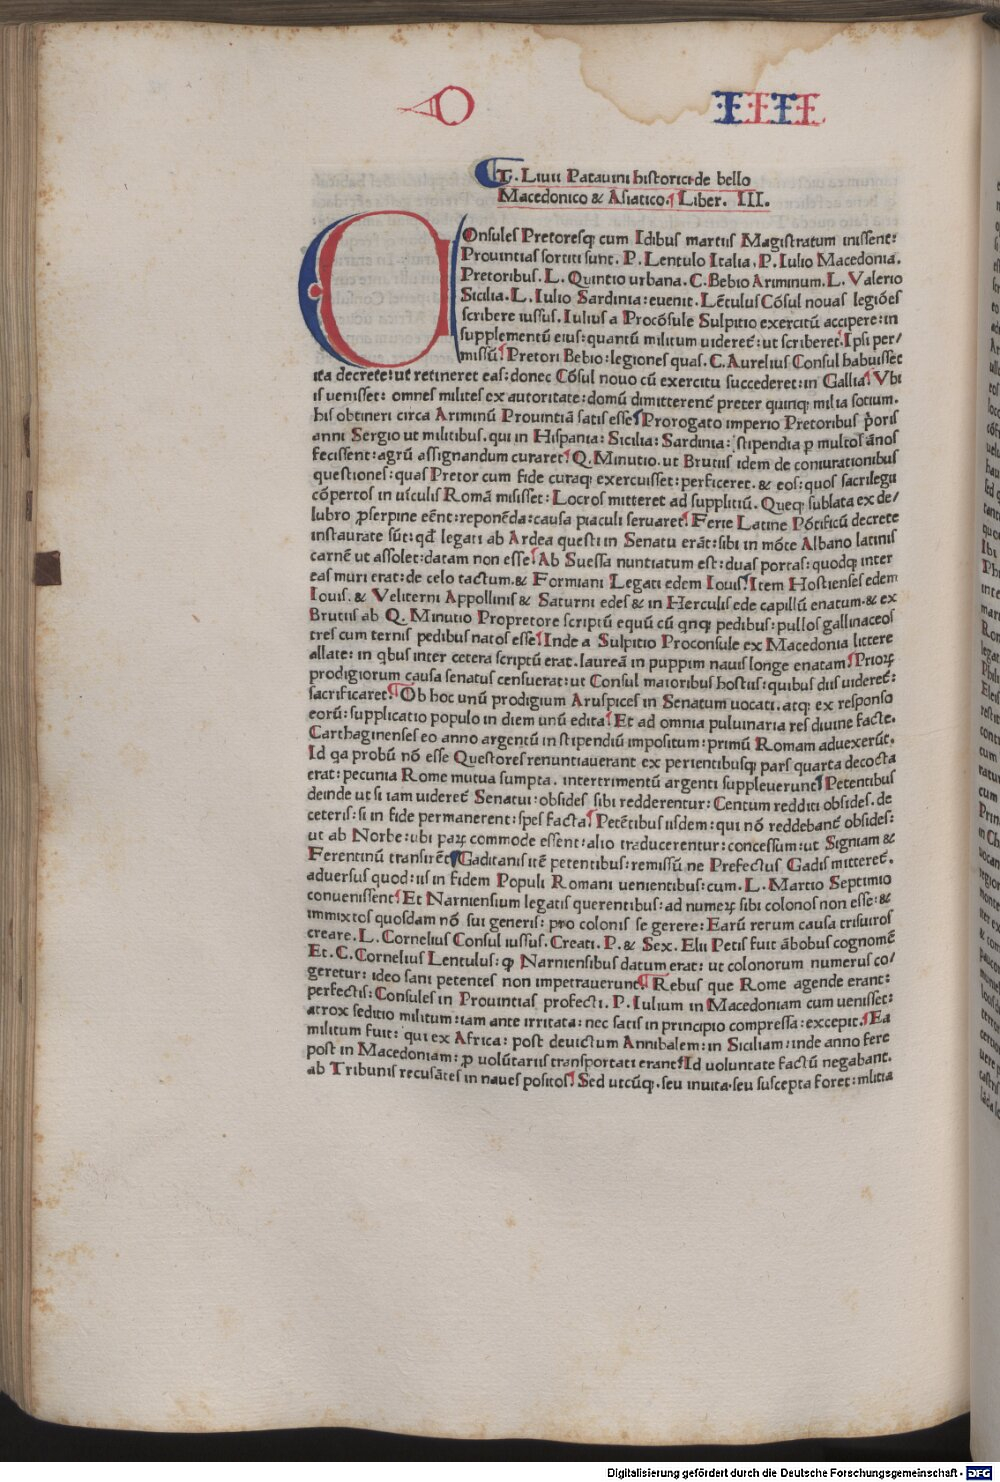 D IIII
T. Liuii Patauini historici de bello
Macedonico & Asiatico. Liber. III.
COnsules Pretoresq; cum Idibus martiis Magistratum inissent:
Prouintias sortiti sunt. P. Lentulo Italia. P. Iulio Macedonia.
Pretoribus. L. Quintio urbana. C. Bebio Ariminum. L. Valerio
Sicilia. L. Iulio Sardinia: euenit. Lētulus Cōsul nouas legiōes
scribere iussus. Iulius a Procōsule Sulpitio exercitū accipere: in
supplementū eius: quantū militum uideret̄: ut scriberet. Ipsi per/
missū Pretori Bebio: legiones quas. C. Aurelius Consul habuisset
ita decrete: ut retineret eas: donec Cōsul nouo cū exercitu succederet: in Gallia. Vbi
is uenisset: omnes milites ex autoritate: domū dimitterent̄ preter quinq; milia sotium.
his obtineri circa Ariminū Prouintiā satis esse. Prorogato imperio Pretoribus p̄oris
anni Sergio ut militibus. qui in Hispania: Sicilia: Sardinia: stipendia ꝑ multos ānos
fecissent: agrū assignandum curaret. Q. Minutio. ut Brutiis idem de coniurationibus
questiones: quas Pretor cum fide curaq; exercuisset: perficeret. & eos: quos sacrilegii
cōpertos in uīculis Romā misisset: Locros mitteret ad supplitiū. Queq; sublata ex de/
lubro ꝓserpine eēnt: reponēda: causa piaculi seruaret. Ferie Latine Pōtificū decrete
instaurate sūt: qđ legati ab Ardea questi in Senatu erāt: sibi in mōte Albano latinis
carnē ut assolet: datam non esse. Ab Suessa nuntiatum est: duas portas: quodq; inter
eas muri erat: de celo tactum. & Formiani Legati edem Iouis. Item Hostienses edem
Iouis. & Veliterni Appollinis & Saturni edes & in Herculis ede capillū enatum. & ex
Brutiis ab Q. Minutio Propretore scriptū equū cū qnq; pedibus: pullos gallinaceos
tres cum ternis pedibus natos esse. Inde a Sulpitio Proconsule ex Macedonia littere
allate: in qbus inter cetera scriptū erat. laureā in puppim nauis longe enatam. Prioꝝ
prodigiorum causa senatus censuerat: ut Consul maioribus hostiis: quibus diis uideret̄:
sacrificaret. Ob hoc unū prodigium Aruspices in Senatum uocati. atq; ex responso
eorū: supplicatio populo in diem unū edita. Et ad omnia puluinaria res diuine facte.
Carthaginenses eo anno argentū in stipendiū impositum: primū Romam aduexerūt.
Id qa probū nō esse Questores renuntiauerant ex perientibusq; pars quarta decocta
erat: pecunia Rome mutua sumpta. intertrimentū argenti suppleuerunt. Petentibus
deinde ut si iam uideret̄ Senatui: obsides sibi redderentur: Centum redditi obsides. de
ceteris: si in fide permanerent: spes facta. Petētibus iisdem: qui nō reddebant̄ obsides:
ut ab Norbe: ubi paꝝ commode essent: alio traducerentur: concessum: ut Signiam &
Ferentinū transirēt. Gaditanis itē petentibus: remissū ne Prefectus Gadis mitteret̄.
aduersus quod: iis in fidem Populi Romani uenientibus: cum. L. Martio Septimio
conuenisset. Et Narniensium legatis querentibus: ad numeꝝ sibi colonos non esse: &
immixtos quosdam nō sui generis: pro colonis se gerere: Earū rerum causa triuiros
creare. L. Cornelius Consul iussus. Creati. P. & Sex. Elii Petis fuit ābobus cognomē
Et. C. Cornelius Lentulus: ꝙ Narniensibus datum erat: ut colonorum numerus co/
geretur: ideo sani petentes non impetrauerunt. Rebus que Rome agende erant:
perfectis: Consules in Prouintias profecti. P. Iulium in Macedoniam cum uenisset:
atrox seditio militum: iam ante irritata: nec satis in principio compressa: excepit. Ea
militum fuit: qui ex Africa: post deuictum Annibalem: in Siciliam: inde anno fere
post in Macedoniam: ꝑ volūtariis transportati erant. Id uoluntate factū negabant.
ab Tribunis recusātes in naues positos. Sed utcūq. seu inuita. seu suscepta foret: militia
Digitalisierung gefördert durch die Deutsche Forschungsgemeinschaft - DFG